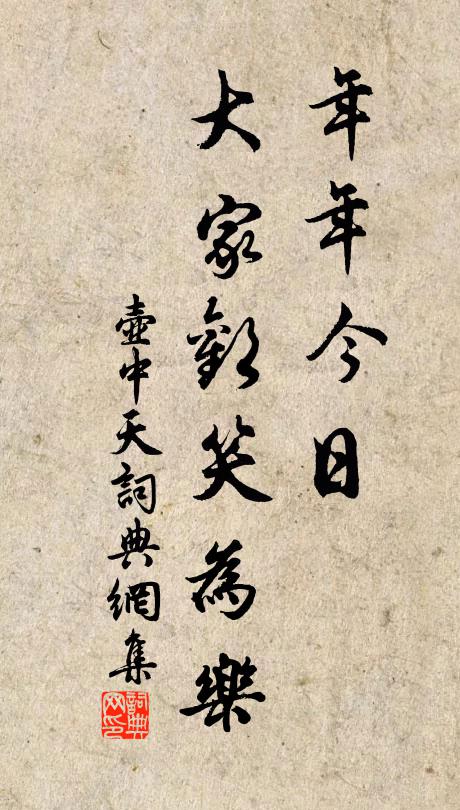 年年今日
大家歡笑為樂
壺中天詞典網集
詞典
网印